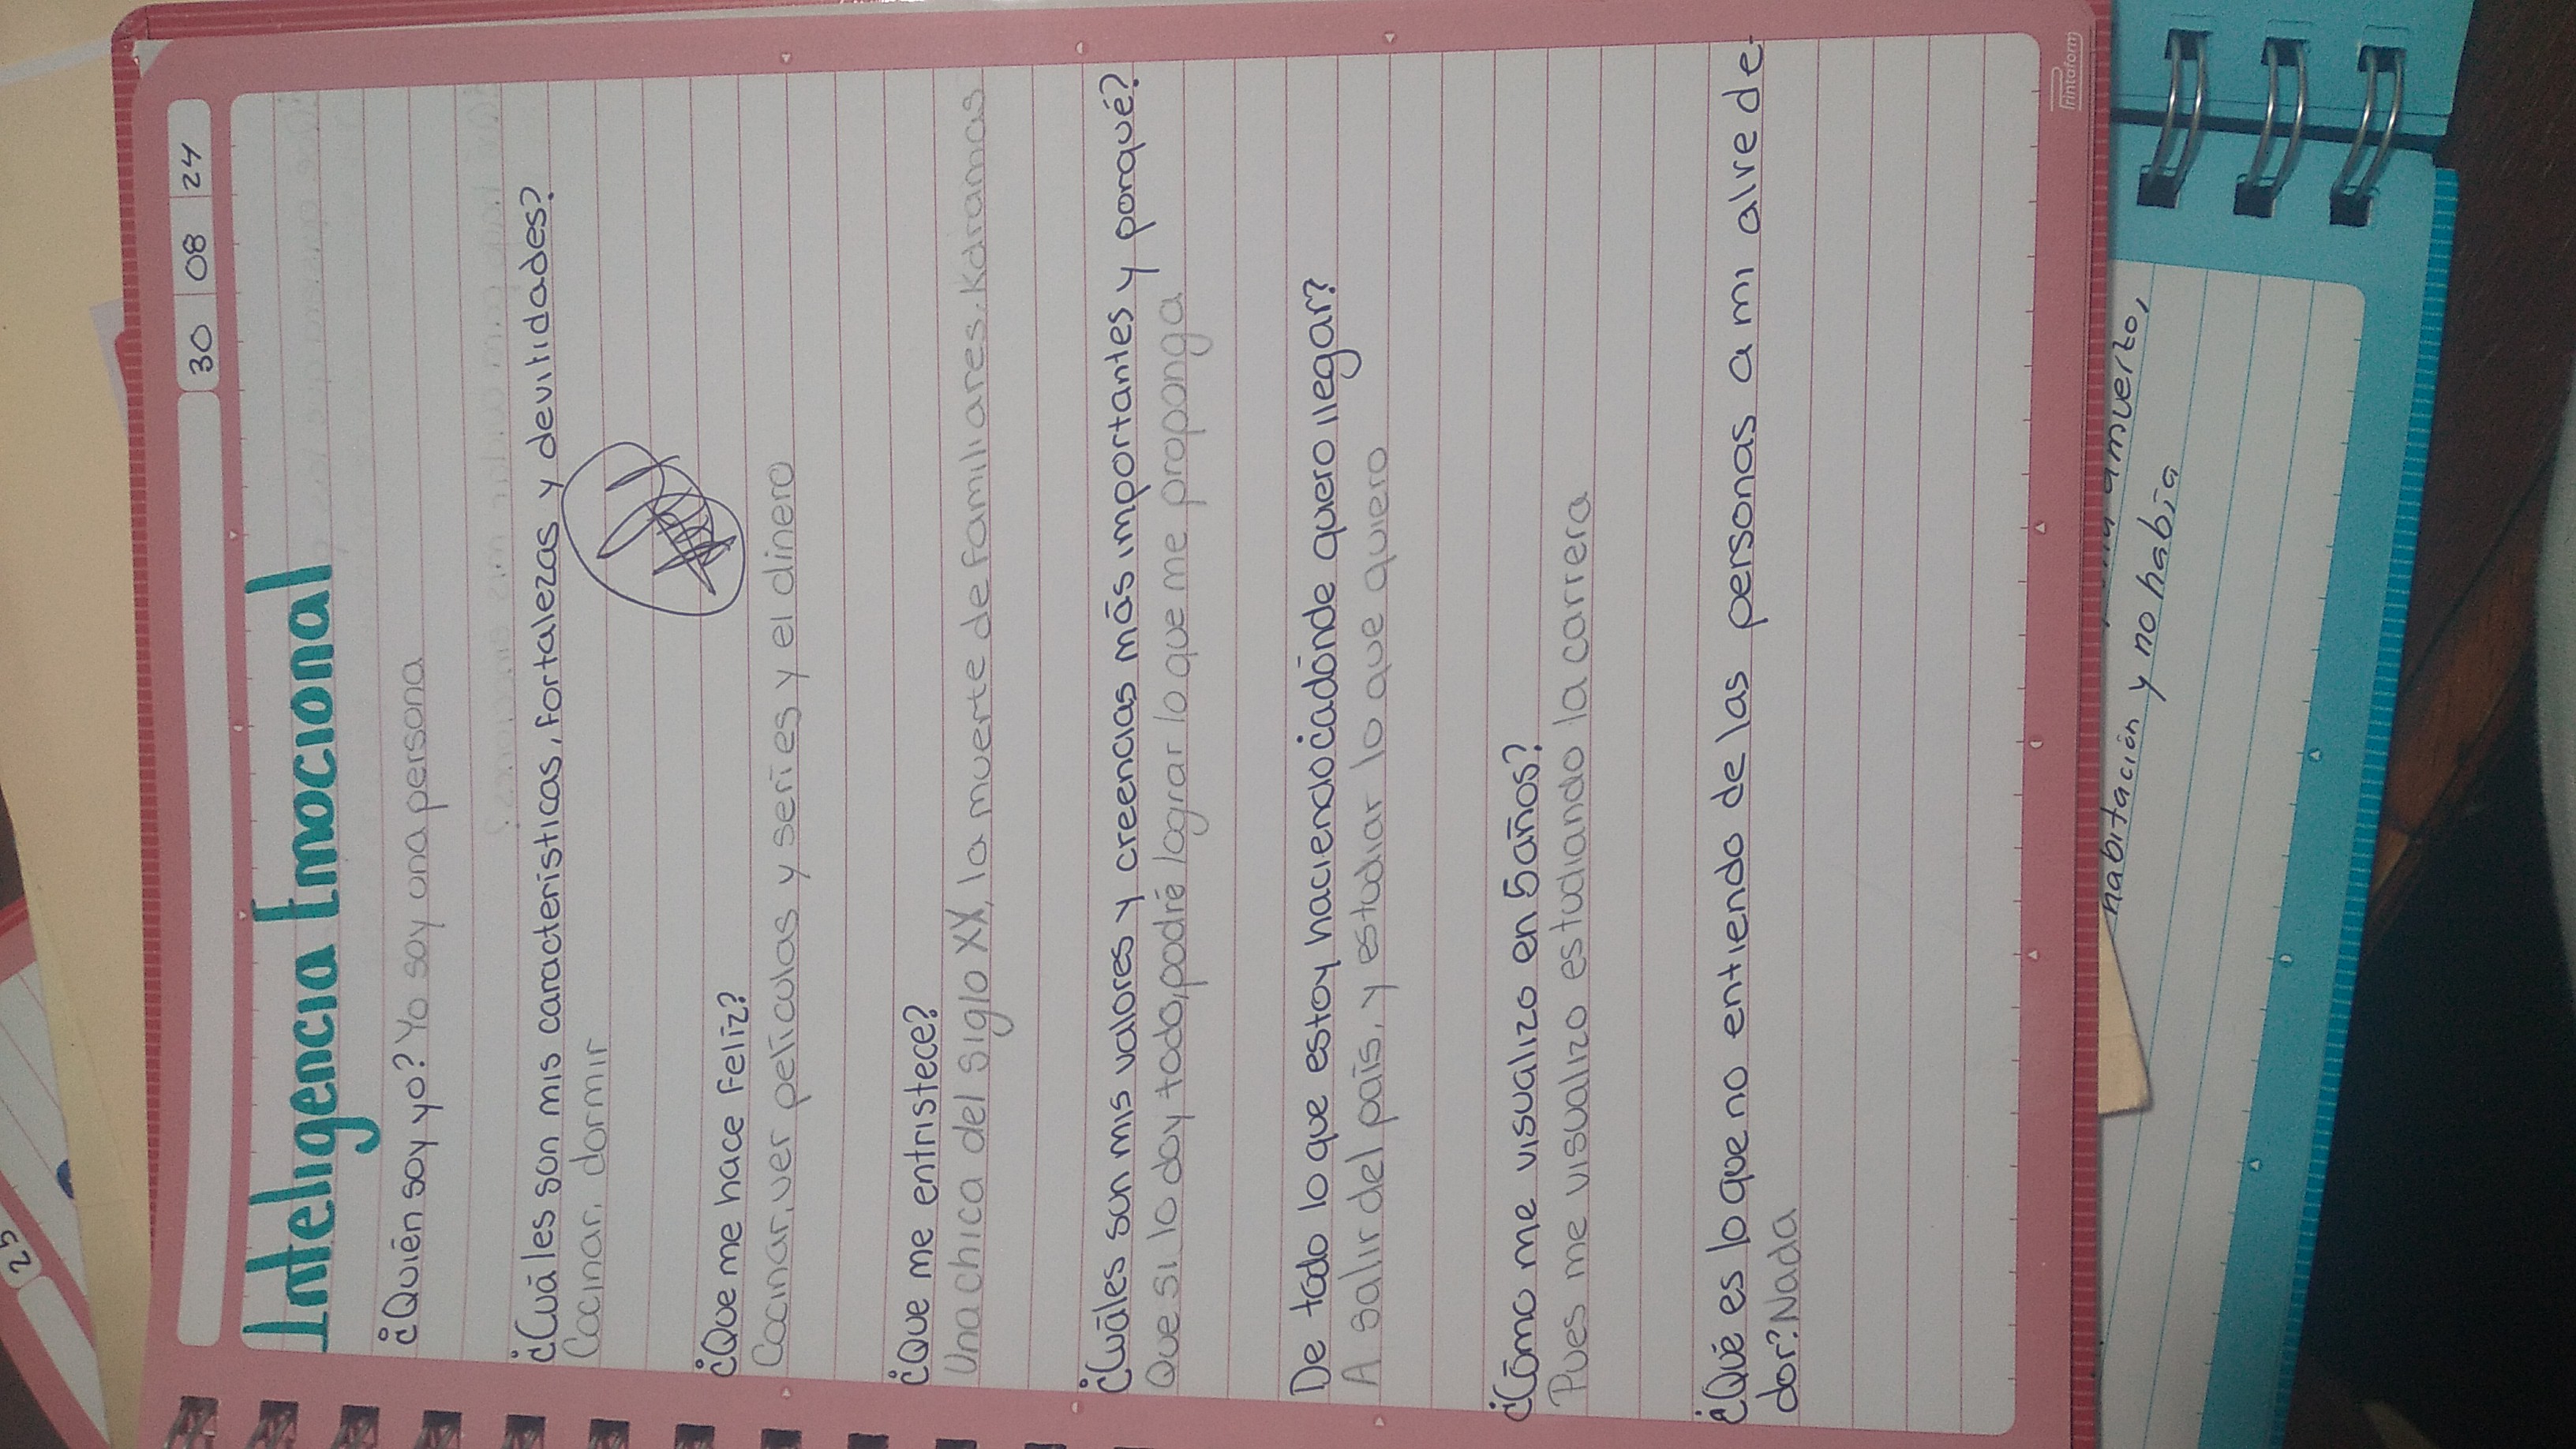 30 08 24
Inteligencia Emocional
¿Quién soy yo? Yo soy una persona
¿Cuáles son mis características, fortalezas y devilidades?
Cocinar, dormir
¿Que me hace feliz?
Cocinar, ver películas y seríes y el dinero
¿Que me entristece?
Una chica del siglo XX, la muerte de familiares, Kdramas
¿Cuáles son mis valores y creencias más importantes y porqué?
Que si lo doy todo, podré lograr lo que me proponga
De todo lo que estoy haciendo ¿adónde quero llegar?
A salir del país, y estudiar lo que quiero
¿Cómo me visualizo en 5 años?
Pues me visualizo estudiando la carrera
¿Qué es lo que no entiendo de las personas a mi alrede-
dor? Nada
Printaform
25
muerto,
habitación y no había